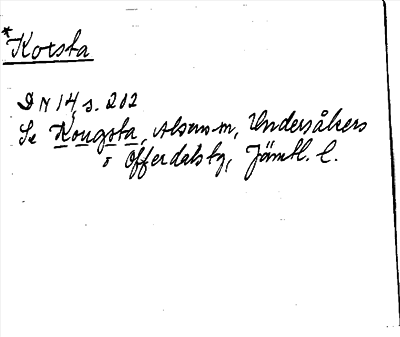 *Korsta
DN 14, s. 202
Se Kougsta, Alsens sn, Undersåkers
o Offerdals tg, Jämtl. l.